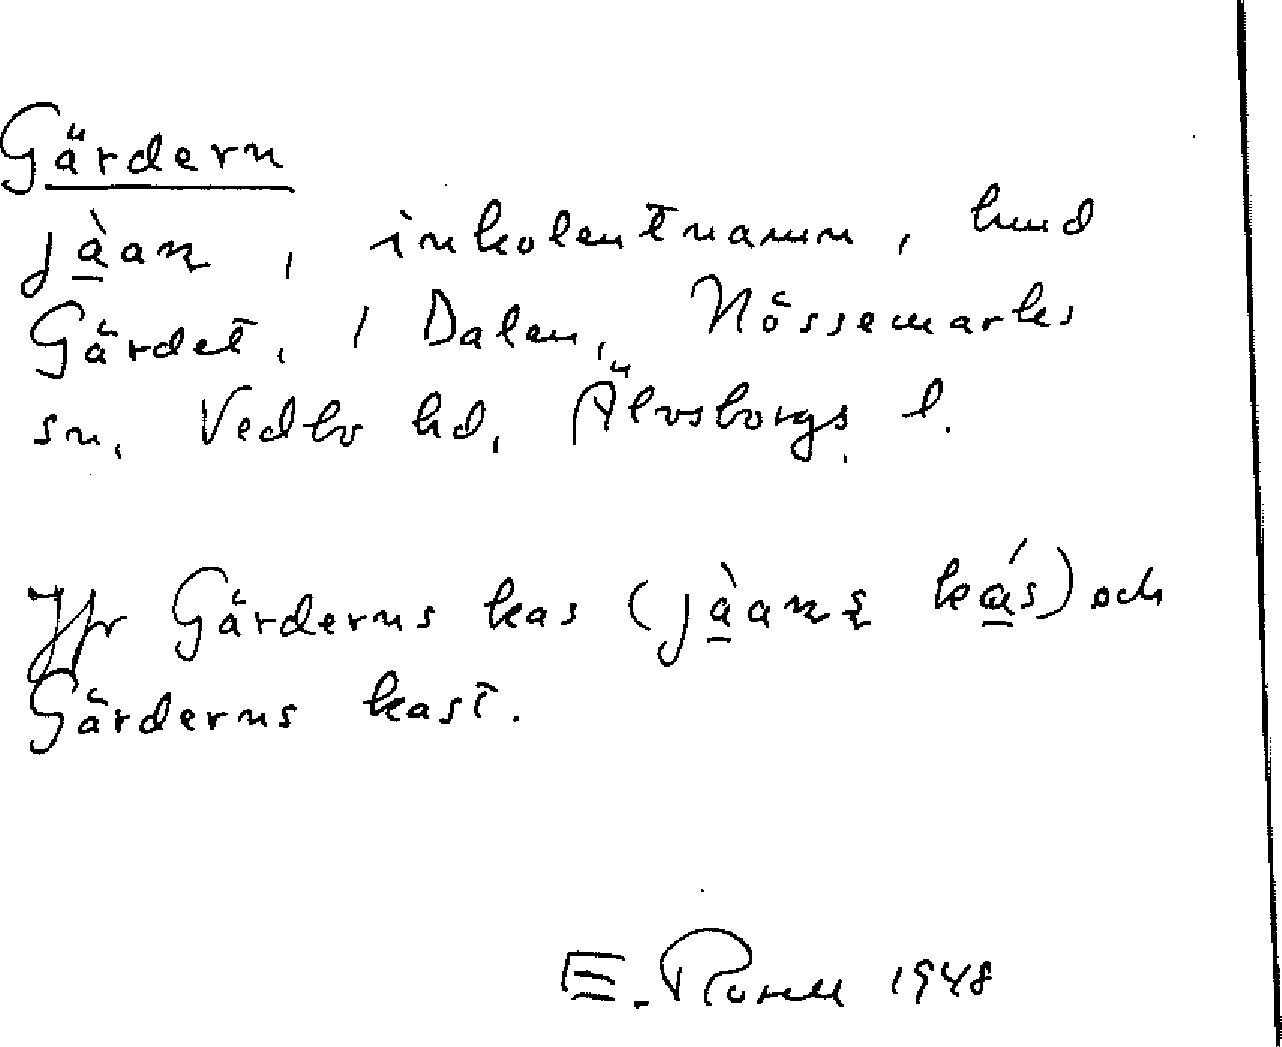 Gärdern
jàan, inkolentnamn, hmd
Gärdet, 1 Dalen, Nössemarks
sn, Vedbo hd, Älvsborgs l.
Jfr Gärderns kas (jàans kás) och
Gärderns kast.
E. 1948